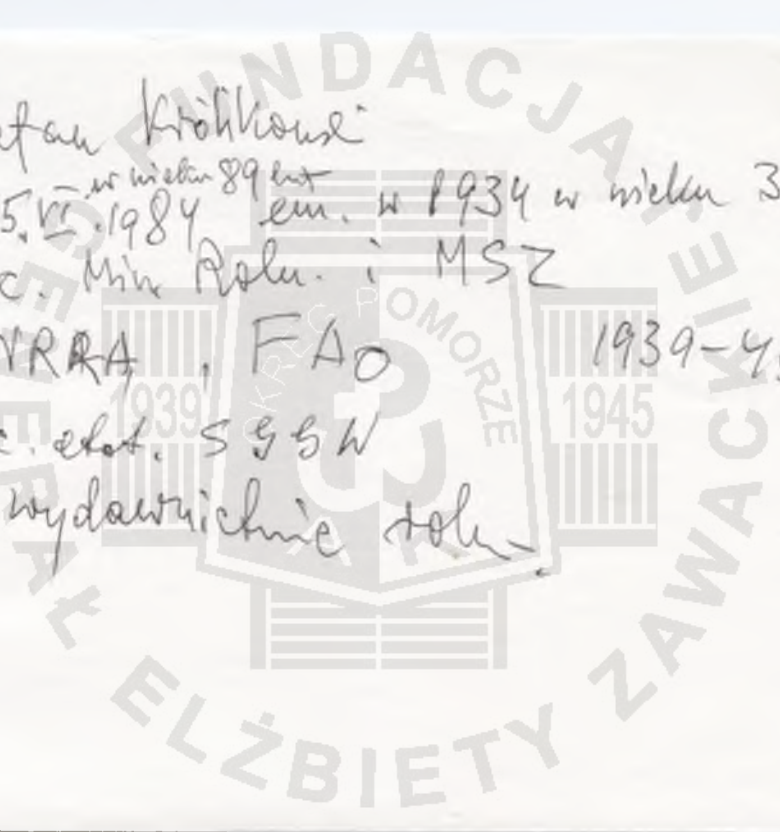 Królikowski
w wieku 89 lat
5.VI.1984 em. w 1934 w wieku 3
c. Min. Roln. i MSZ
NRRA, FAO 1939-4
etat. SGGW
wydawnictwie roln.
FUNDACJA
GENERAŁ ELŻBIETY ZAWACKIEJ
OKRĘG POMORZE
1939 1945
AK